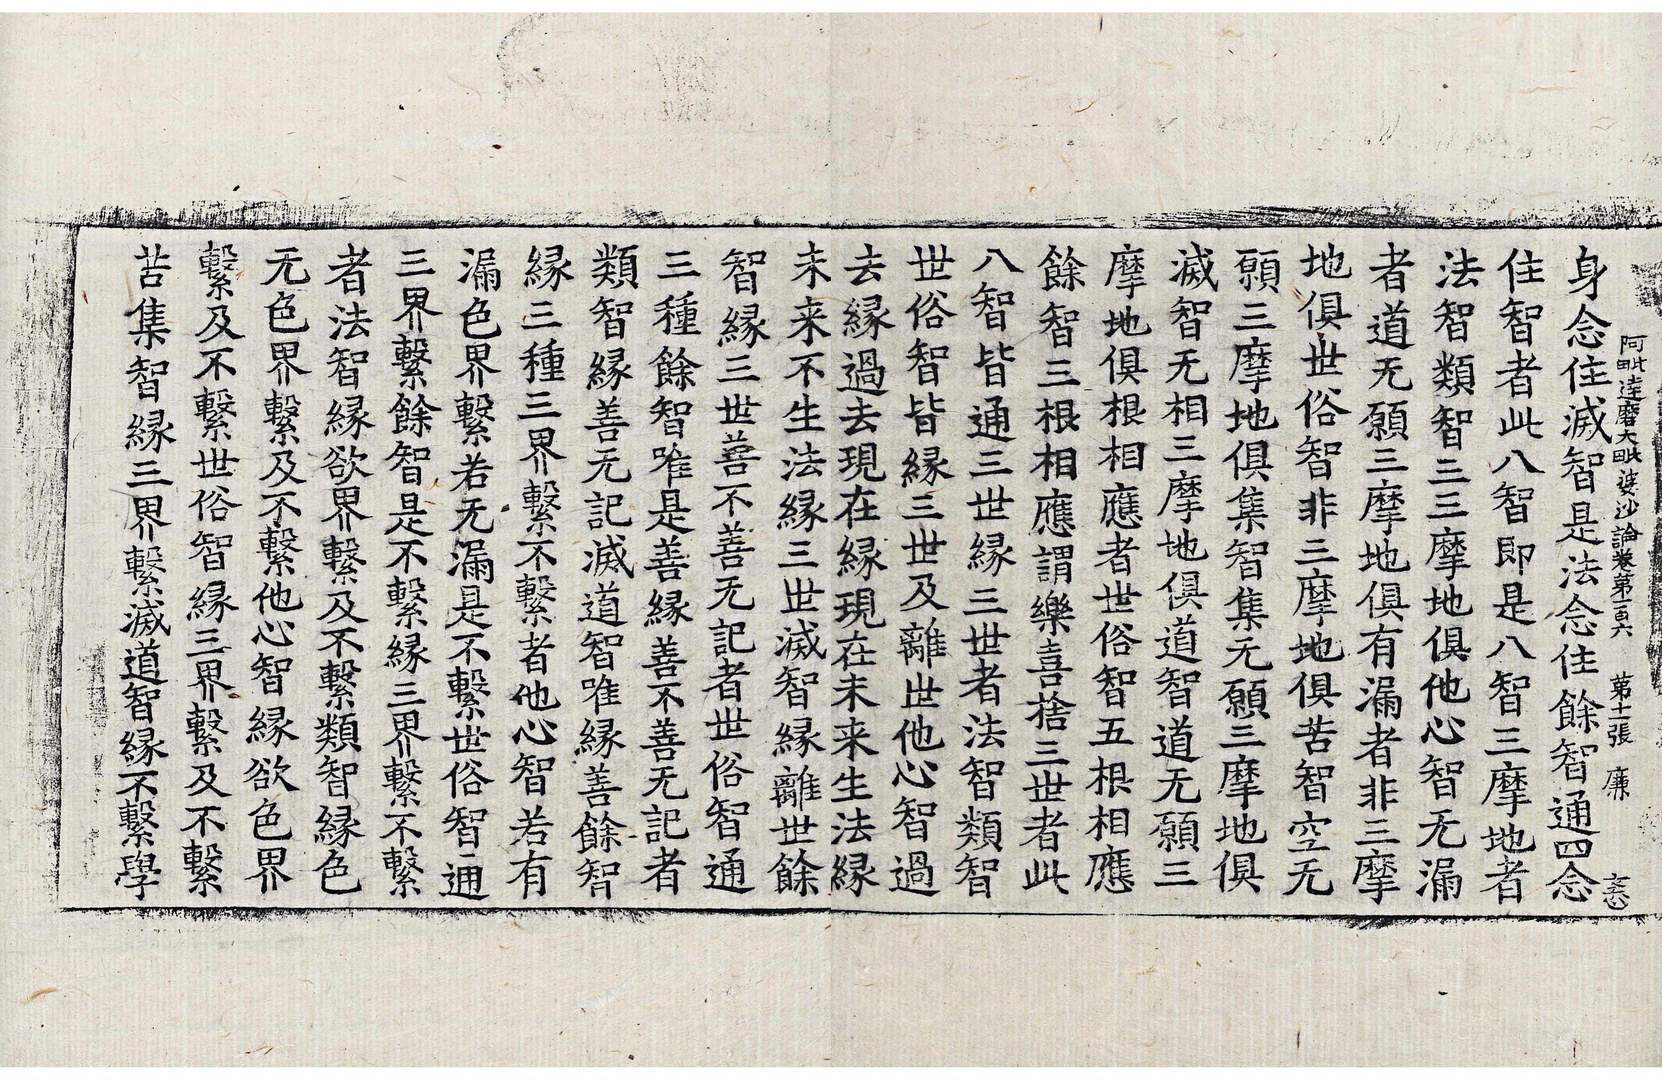 阿毗達磨大毗婆沙論卷第一百六　第十一張　廉
身念住滅智是法念住餘智通四念
住智者此八智即是八智三摩地者
法智類智三三摩地俱他心智无漏
者道无願三摩地俱有漏者非三摩
地俱世俗智非三摩地俱苦智空无
願三摩地俱集智集无願三摩地俱
滅智无相三摩地俱道智道无願三
摩地俱根相應者世俗智五根相應
餘智三根相應謂樂喜捨三世者此
八智皆通三世緣三世者法智類智
世俗智皆緣三世及離世他心智過
去緣過去現在緣現在未来生法緣
未来不生法緣三世滅智緣離世餘
智緣三世善不善无記者世俗智通
三種餘智唯是善緣善不善无記者
類智緣善无記滅道智唯緣善餘智
緣三種三界繫不繫者他心智若有
漏色界繫若无漏是不繫世俗智通
三界繫餘智是不繫緣三界繫不繫
者法智緣欲界繫及不繫類智緣色
无色界繫及不繫他心智緣欲色界
繫及不繫世俗智緣三界繫及不繫
苦集智緣三界繫滅道智緣不繫學